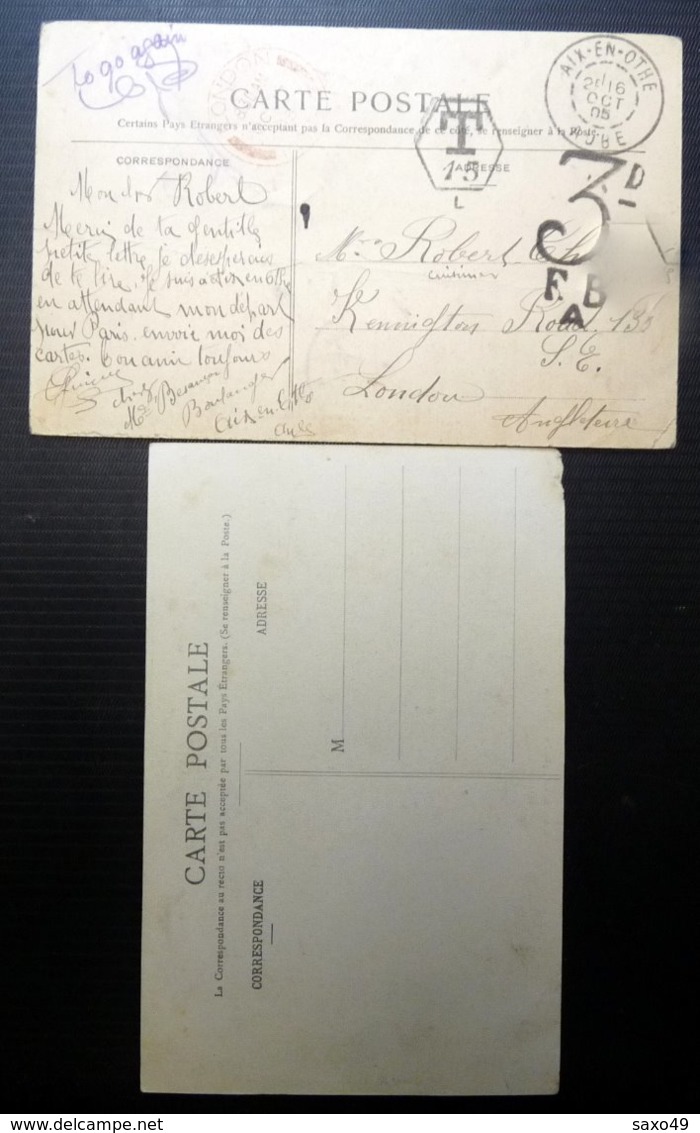 to go again
CARTE POSTALE
Certains Pays Etrangers n'acceptant pas la Correspondance de ce côté, se renseigner à la Poste.
LONDON
AIX-EN-OTHE
2E 16
OCT
05
AUBE
T
15
L
3D
C
F B
A
CORRESPONDANCE
ADRESSE
Mon cher Robert
Merci de ta gentille
petite lettre je desesperais
de te lire. Je suis à Aix en othe
en attendant mon départ
pour Paris. envoie moi des
cartes. Ton ami toujours
chez
Me Besançon
Boulanger
Aix en Othe
Aube
Mr Robert
cuisinier
Kennigton Road. 133
S.E.
London
Angleterre
CARTE POSTALE
La Correspondance au recto n'est pas acceptée par tous les Pays Étrangers. (Se renseigner à la Poste.)
CORRESPONDANCE
ADRESSE
M
saxo49